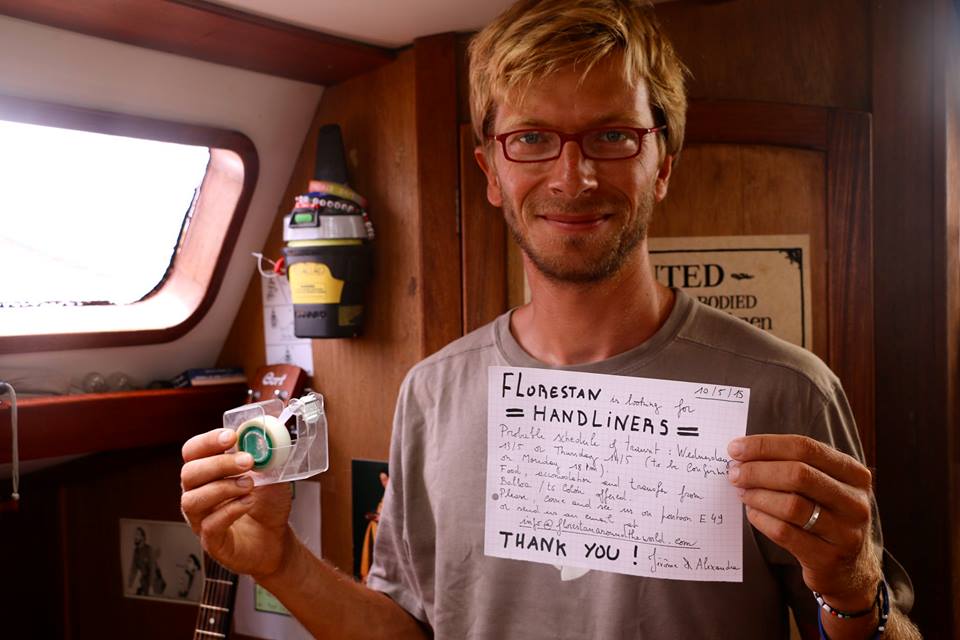 10/5/15
FLORESTAN is looking for
= HANDLINERS =
Probable schedule of transit: Wednesday
13/5 or Thursday 14/5 (to be confirmed
on Monday 18 hrs).
Food, accomodation and transfer from
Balboa / to Colón offered.
Please, come and see us on pontoon E 49
or send us an email at
info@florestanaroundtheworld.com
THANK YOU! Jérôme & Alexandra
TED
BODIED
men
Cort